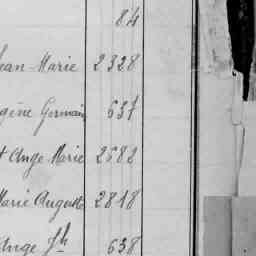 84
Jean-Marie 2328
gène Germain 637
t Ange Marie 2682
Marie Auguste 2818
Ange Jh 638